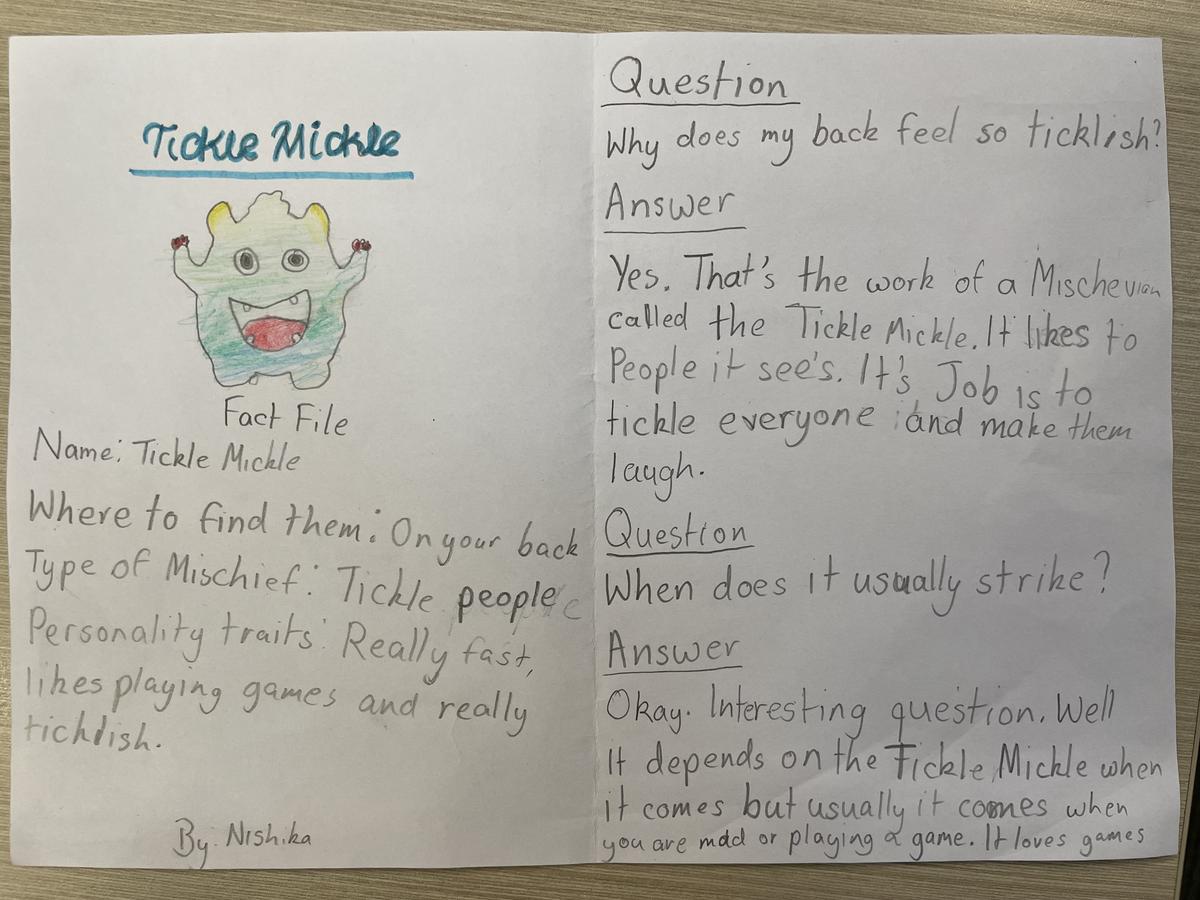 Tickle Mickle
Fact File
Name: Tickle Mickle
Where to find them: On your back
Type of Mischief: Tickle people
Personality traits: Really fast,
likes playing games and really
ticklish.
By: Nishika
Question
Why does my back feel so ticklish?
Answer
Yes. That's the work of a Mischevian
called the Tickle Mickle. It likes to
People it see's. It's Job is to
tickle everyone and make them
laugh.
Question
When does it usually strike?
Answer
Okay. Interesting question. Well
It depends on the Tickle Mickle when
it comes but usually it comes when
you are mad or playing a game. It loves games